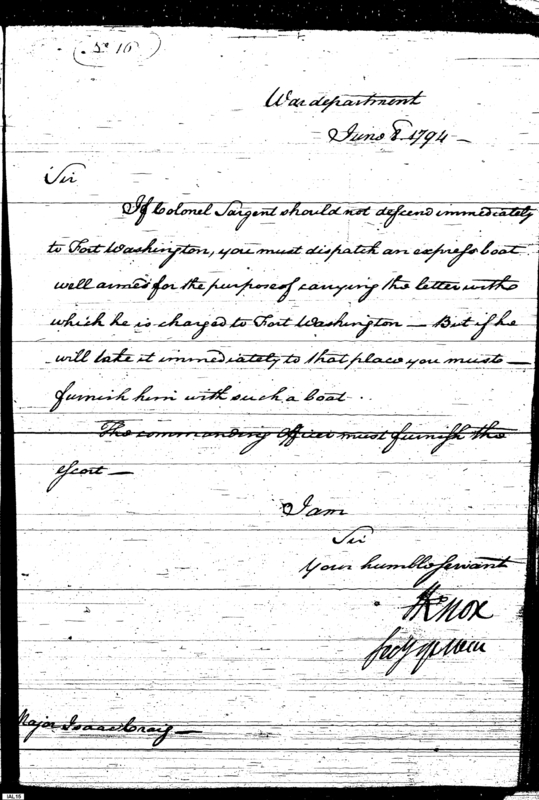 No 16
War department
June 8. 1794 –
Sir
If Colonel Sargent should not descend immediately
to Fort Washington, you must dispatch an express boat
well armed for the purpose of carrying the letter with
which he is charged to Fort Washington – But if he
will take it immediately to that place you must –
furnish him with such a boat.
The commanding officer must furnish the
escort –
I am
Sir
Your humble servant
HKnox
Secy of War
Major Isaac Craig –
IAL16